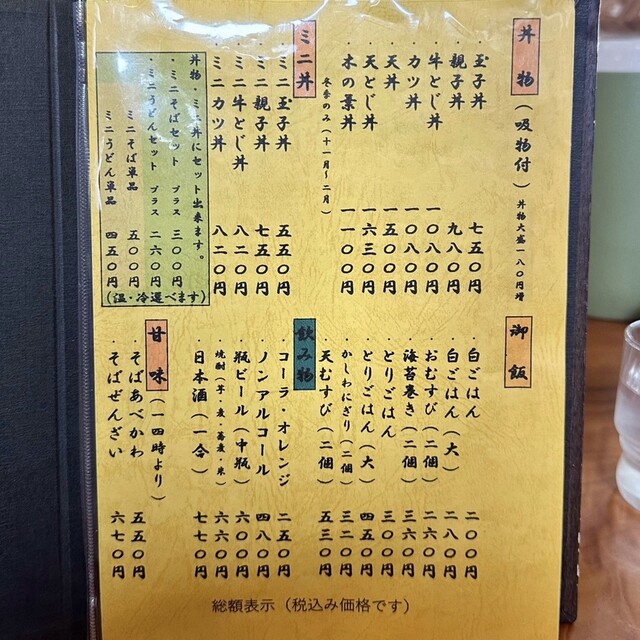 丼物(吸物付)丼物大盛一八〇円増
・玉子丼 七五〇円
・親子丼 九八〇円
・牛とじ丼 一〇八〇円
・カツ丼 一〇八〇円
・天丼 一五〇〇円
・天とじ丼 一六三〇円
・木の葉丼 一一〇〇円
冬季のみ(十一月~二月)
ミニ丼
・ミニ玉子丼 五五〇円
・ミニ親子丼 七五〇円
・ミニ牛とじ丼 八二〇円
・ミニカツ丼 八二〇円
丼物・ミニ丼にセット出来ます。
・ミニそばセット プラス 三〇〇円
・ミニうどんセット プラス 二六〇円
ミニそば単品 五〇〇円
ミニうどん単品 四五〇円
(温・冷選べます)
御飯
・白ごはん 二〇〇円
・白ごはん(大) 二八〇円
・おむすび(二個) 二六〇円
・海苔巻き(二個) 三六〇円
・とりごはん 三〇〇円
・とりごはん(大) 四五〇円
・かしわにぎり(二個) 三二〇円
・天むすび(二個) 五三〇円
飲み物
・コーラ・オレンジ 二五〇円
・ノンアルコール 四八〇円
・瓶ビール(中瓶) 六〇〇円
・焼酎(芋・麦・蕎麦・米) 六六〇円
・日本酒(一合) 七七〇円
甘味(一四時より)
・そばあべかわ 五五〇円
・そばぜんざい 六七〇円
総額表示(税込み価格です)